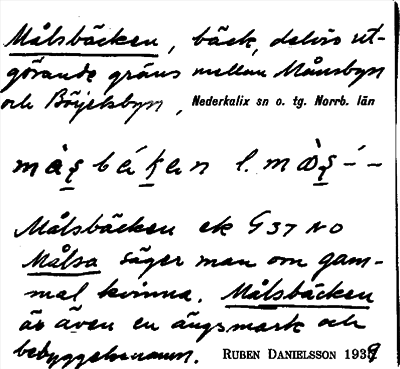 Målsbäcken, bäck, delvis ut-
görande gräns mellan Månsbyn
och Böjelsbyn, Nederkalix sn o. tg. Norrb. län
l.
Målsbäcken ek G 37 NO
Målsa säger man om gam-
mal kvinna. Målsbäcken
är även en ängsmark och
bebyggelsenamn. RUBEN DANIELSSON 1939